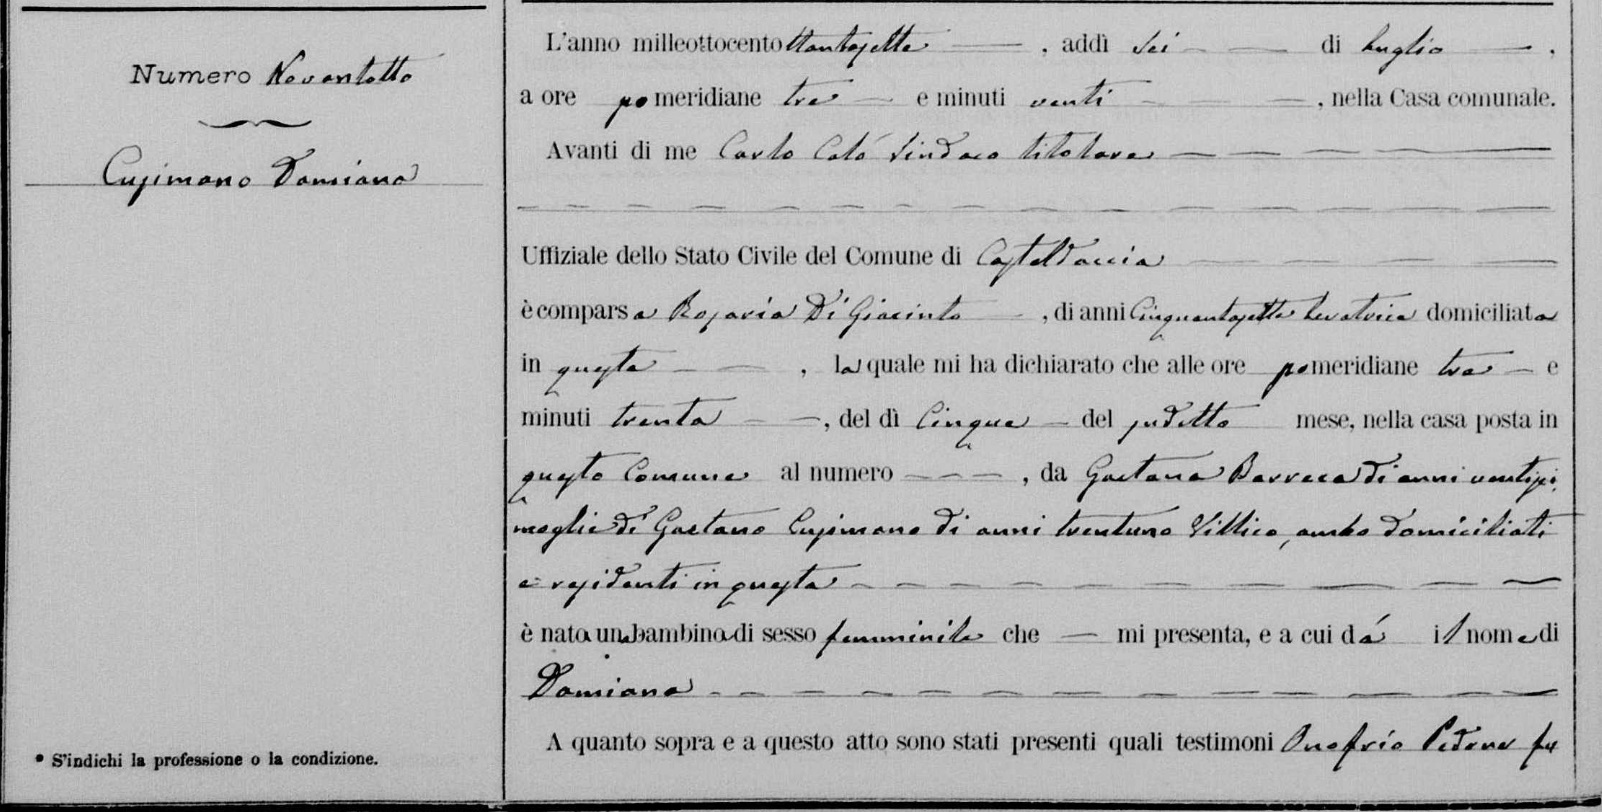 Numero Novantotto
Cusimano Damiana
* S'indichi la professione o la condizione.
L'anno milleottocento ottantasette, addì sei di luglio,
a ore pomeridiane tre e minuti venti, nella Casa comunale.
Avanti di me Carlo Calò Sindaco titolare
Uffiziale dello Stato Civile del Comune di Casteldaccia
è comparsa Rosaria Di Giacinto, di anni Cinquantasette levatrice domiciliata
in questa, la quale mi ha dichiarato che alle ore pomeridiane tre e
minuti trenta, del dì Cinque del sudetto mese, nella casa posta in
questo Comune al numero, da Gaetana Barreca di anni ventisei
moglie di Gaetano Cusimano di anni trentuno Villico, ambo domiciliati
e residenti in questa
è nata una bambina di sesso femminile che mi presenta, e a cui dà il nome di
Damiana
A quanto sopra e a questo atto sono stati presenti quali testimoni Onofrio fu